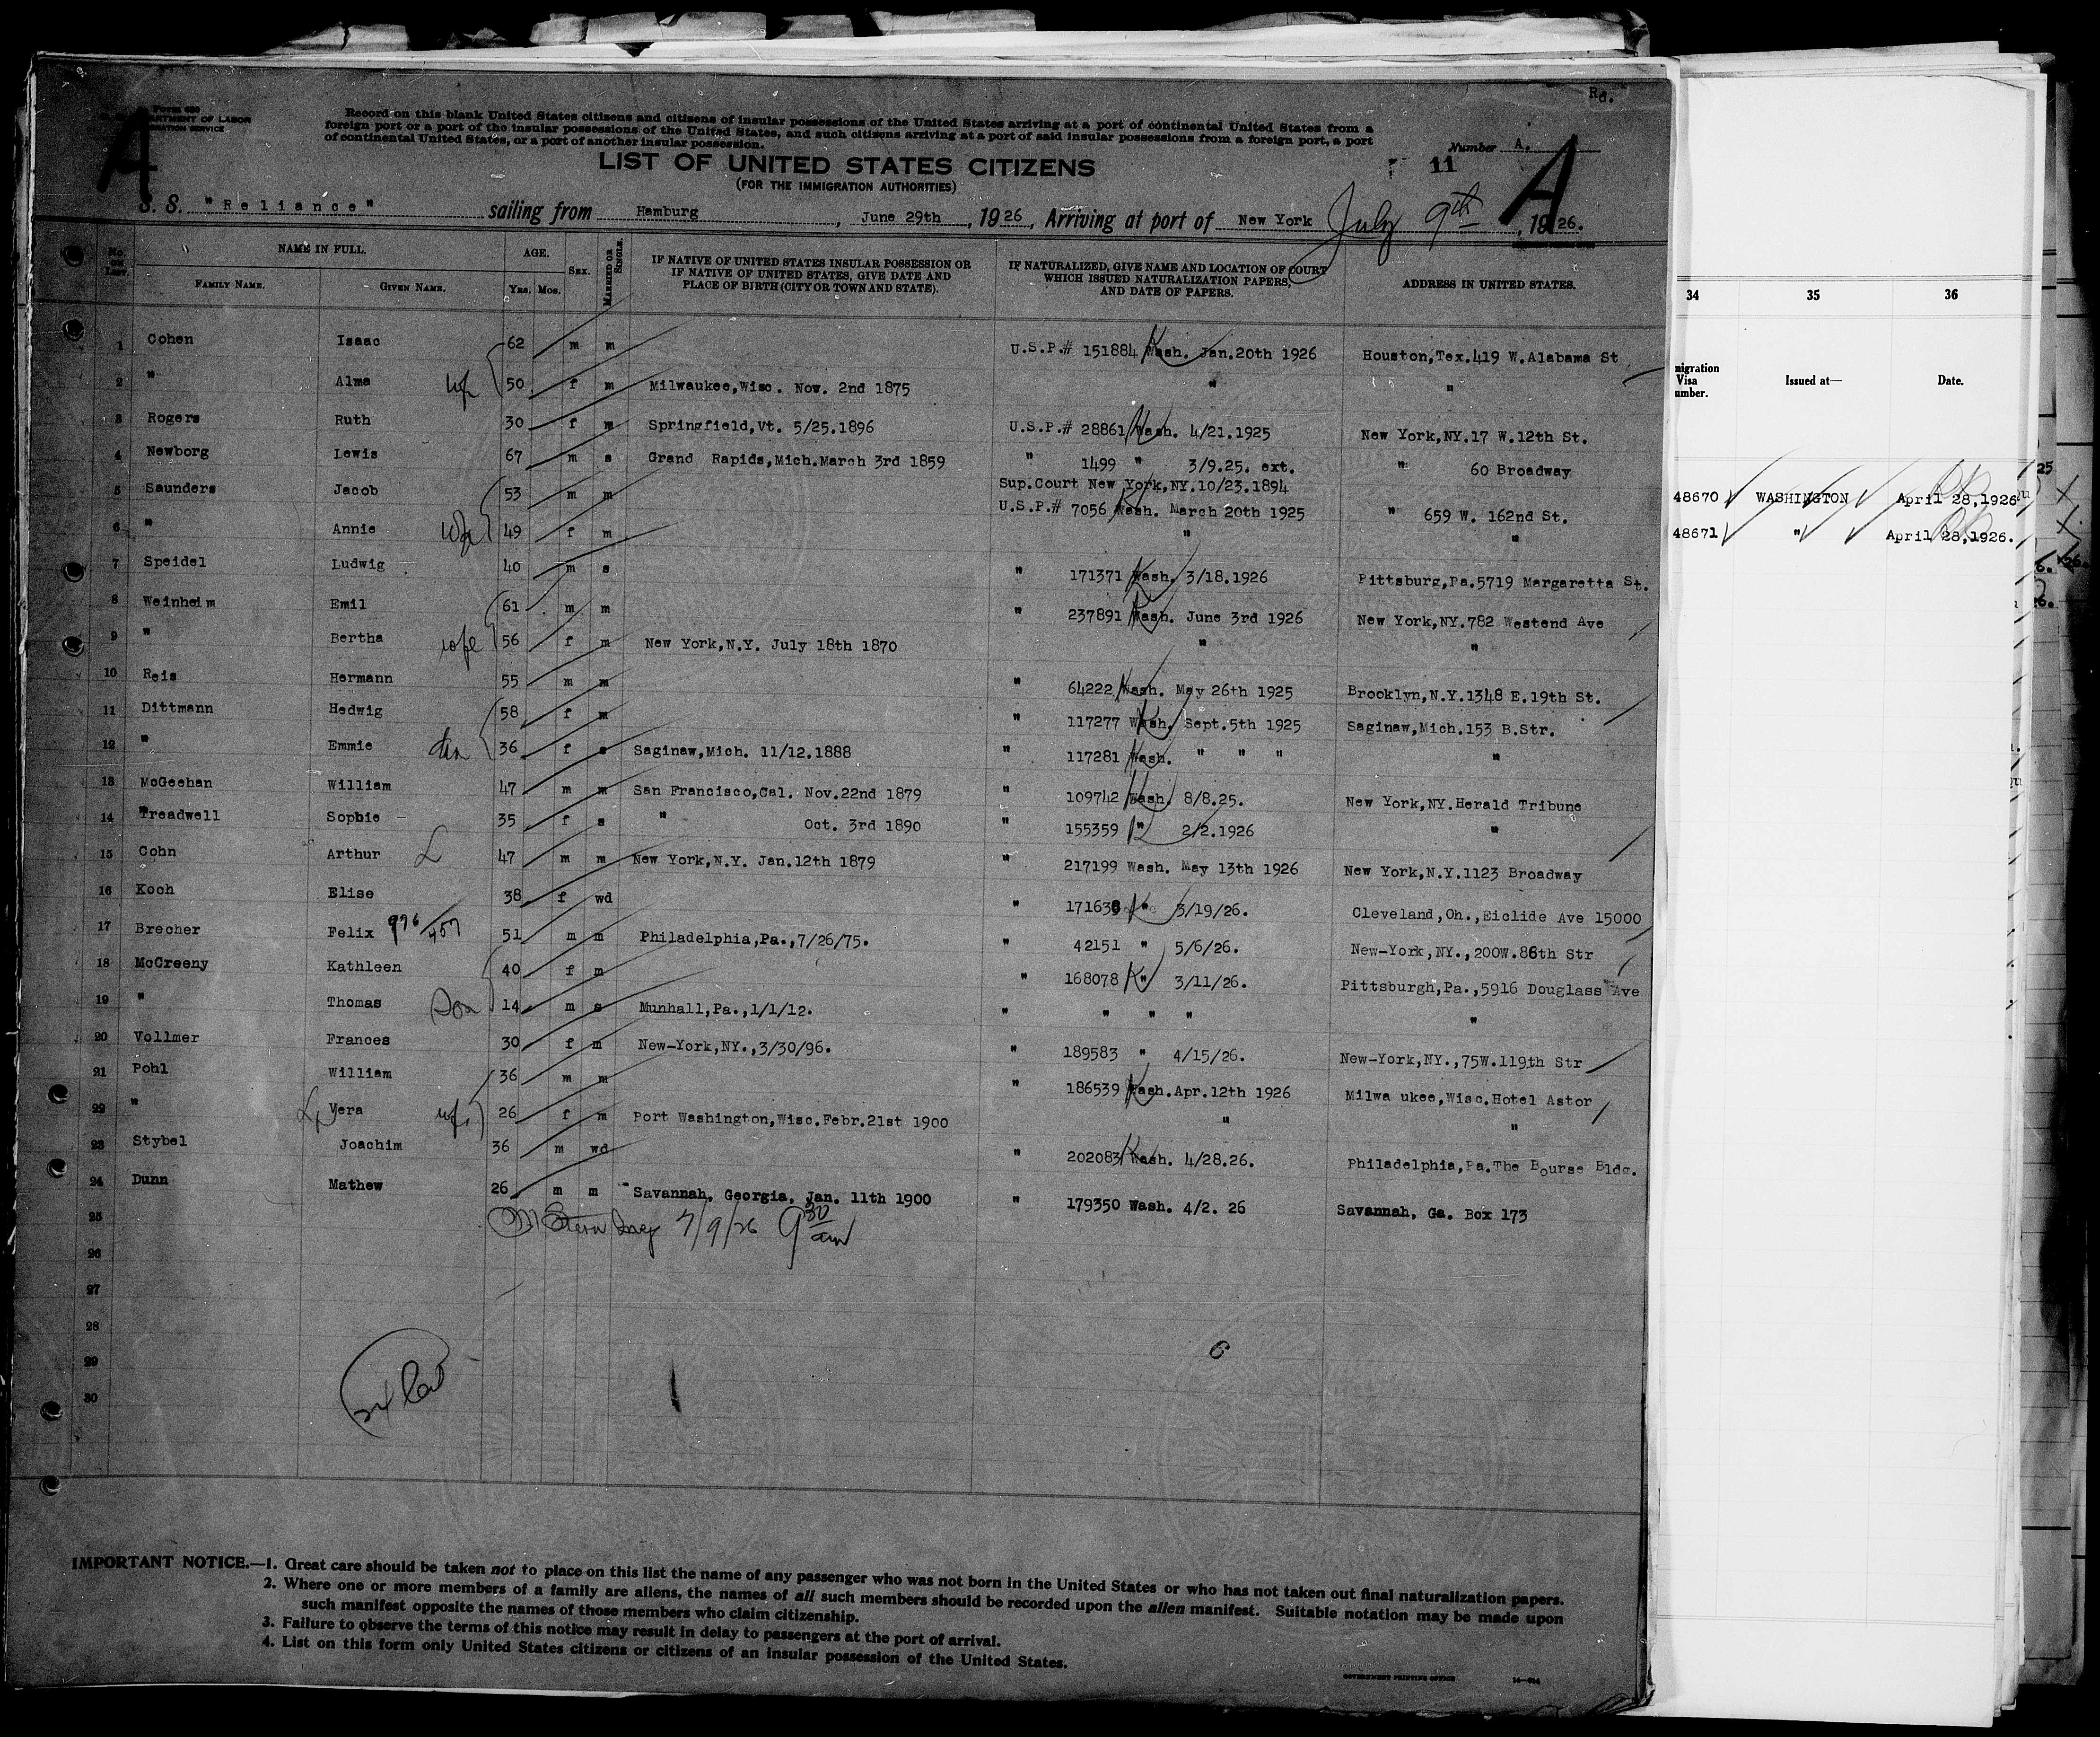 Rd.
Form 630
DEPARTMENT OF LABOR
IMMIGRATION SERVICE
Record on this blank United States citizens and citizens of insular possessions of the United States arriving at a port of continental United States from a
foreign port or a port of the insular possessions of the United States, and such citizens arriving at a port of said insular possessions from a foreign port, a port
of continental United States, or a port of another insular possession.
Number A.
A
LIST OF UNITED STATES CITIZENS
11
A
(FOR THE IMMIGRATION AUTHORITIES)
S. S. "Reliance" sailing from Hamburg, June 29th, 1926, Arriving at port of New York July 9th, 1926.
No. on List. NAME IN FULL. AGE. SEX. MARRIED OR SINGLE. IF NATIVE OF UNITED STATES INSULAR POSSESSION OR IF NATIVE OF UNITED STATES, GIVE DATE AND PLACE OF BIRTH (CITY OR TOWN AND STATE). IF NATURALIZED, GIVE NAME AND LOCATION OF COURT WHICH ISSUED NATURALIZATION PAPERS, AND DATE OF PAPERS. ADDRESS IN UNITED STATES.
FAMILY NAME. GIVEN NAME. Yrs. Mos.
1 Cohen Isaac 62 m m U.S.P.# 151884 Wash. Jan.20th 1926 Houston,Tex.419 W.Alabama St
2 " Alma wf 50 f m Milwaukee,Wisc. Nov. 2nd 1875 " "
3 Rogers Ruth 30 f m Springfield,Vt. 5/25.1896 U.S.P.# 28861 Wash. 4/21.1925 New York,NY.17 W.12th St.
4 Newborg Lewis 67 m s Grand Rapids,Mich.March 3rd 1859 " 1499 " 3/9.25. ext. " 60 Broadway
5 Saunders Jacob 53 m m Sup.Court New York,NY.10/23.1894
U.S.P.# 7056 Wash. March 20th 1925 " 659 W. 162nd St.
6 " Annie wfe 49 f m " "
7 Speidel Ludwig 40 m s " 171371 Wash. 3/18.1926 Pittsburg,Pa.5719 Margaretta St.
8 Weinheim Emil 61 m m " 237891 Wash. June 3rd 1926 New York,NY.782 Westend Ave
9 " Bertha wfe 56 f m New York,N.Y. July 18th 1870 " "
10 Reis Hermann 55 m m " 64222 Wash. May 26th 1925 Brooklyn,N.Y.1348 E.19th St.
11 Dittmann Hedwig 58 f m " 117277 Wash. Sept.5th 1925 Saginaw,Mich.153 B.Str.
12 " Emmie dau 36 f s Saginaw,Mich. 11/12.1888 " 117281 Wash. " " " "
13 McGeehan William 47 m m San Francisco,Cal. Nov.22nd 1879 " 109742 Wash. 8/8.25. New York,NY.Herald Tribune
14 Treadwell Sophie 35 f s " Oct. 3rd 1890 " 155359 " 2/2.1926 "
15 Cohn Arthur 47 m m New York,N.Y. Jan.12th 1879 " 217199 Wash. May 13th 1926 New York,N.Y.1123 Broadway
16 Koch Elise 38 f wd " 171638 " 3/19/26. Cleveland,Oh.,Eiclide Ave 15000
17 Brecher Felix 51 m m Philadelphia,Pa.,7/26/75. " 42151 " 5/6/26. New-York,NY.,200W.86th Str
18 McCreeny Kathleen 40 f m " 168078 " 3/11/26. Pittsburgh,Pa.,5916 Douglass Ave
19 " Thomas Son 14 m s Munhall,Pa.,1/1/12. " " " " "
20 Vollmer Frances 30 f m New-York,NY.,3/30/96. " 189583 " 4/15/26. New-York,NY.,75W.119th Str
21 Pohl William 36 m m " 186539 Wash.Apr.12th 1926 Milwa ukee,Wisc.Hotel Astor
22 " Vera wf. 26 f m Port Washington,Wisc.Febr.21st 1900 " "
23 Stybel Joachim 36 m wd " 202083 Wash. 4/28.26. Philadelphia,Pa.The Bourse Bldg.
24 Dunn Mathew 26 m m Savannah, Georgia, Jan. 11th 1900 " 179350 Wash. 4/2. 26 Savannah, Ga. Box 173
25 M Stern 7/9/26 9 30 am
26
27
28
29
30
IMPORTANT NOTICE.—1. Great care should be taken not to place on this list the name of any passenger who was not born in the United States or who has not taken out final naturalization papers.
2. Where one or more members of a family are aliens, the names of all such members should be recorded upon the alien manifest. Suitable notation may be made upon
such manifest opposite the names of those members who claim citizenship.
3. Failure to observe the terms of this notice may result in delay to passengers at the port of arrival.
4. List on this form only United States citizens or citizens of an insular possession of the United States.
GOVERNMENT PRINTING OFFICE
34 35 36
Visa Issued at— Date.
48670 WASHINGTON April 28,1926
48671 " April 28,1926.